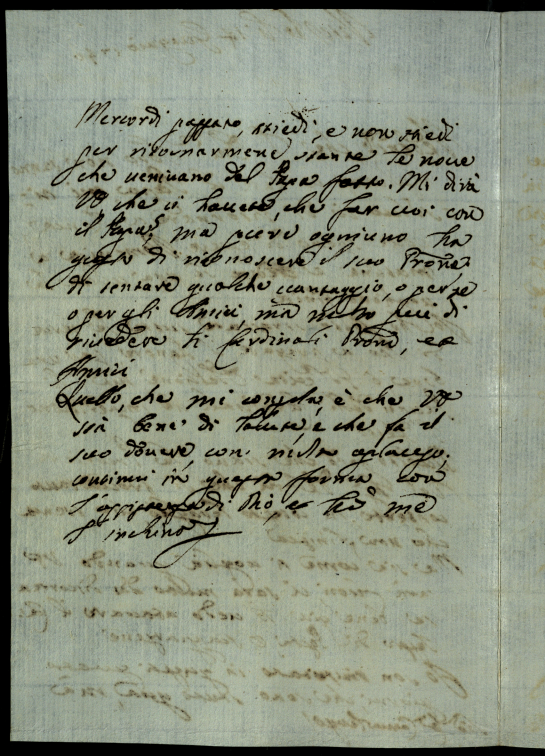 Mercordì passato, stiedi, e non stiedi
per ritornarmene stante le nove
che venivano del Papa fatto. Mi dirà
VS che ci havete, che far voi con
il Papa, ma però ogniuno ha
gusto di riconoscere il suo Prone
di sentare qualche vantaggio, o per se
o per gli Amici, ma molto più di
risedere li Cardinali Proni, et
Amici
Quello, che mi consola è che VS
stà bene di salute, è che fa il
suo dovere con molto
continui in questa forma con
l'assistenza di Dio, et me
l'inchino